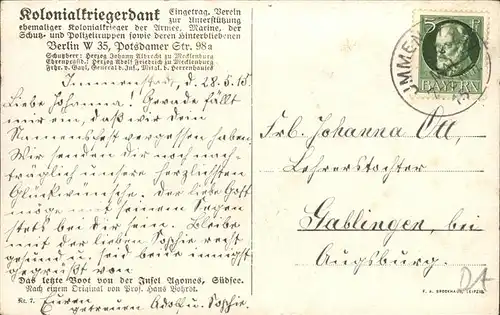 Kolonialkriegerdank Eingetrag. Verein
zur Unterstützung
ehemaliger Kolonialkrieger der Armee, Marine, der
Schutz- und Polizeitruppen sowie deren Hinterbliebenen
Berlin W 35, Potsdamer Str. 98a
Schutzherr: Herzog Johann Albrecht zu Mecklenburg
Ehrenpräsid.: Herzog Adolf Friedrich zu Mecklenburg
Frhr. v. Gayl, General d. Inf., Mitgl. d. Herrenhauses
Immenstadt, d. 28.5.15.
Liebe Johanna! Gerade fällt
mir ein, daß wir dem
Namensfest vergessen haben.
Wir senden dir noch nach-
träglich unsere herzlichsten
Glückwünsche. Der liebe Gott
möge mit seinem Segen
stets bei dir sein. Bleibe
mit der lieben Sophie recht
gesund. seid beide innigst
gegrüßt von
Das letzte Boot von der Insel Agomes, Südsee.
Nach einem Original von Prof. Hans Bohrdt.
Nr. 7. Euren
getreuen Adolf u. Sophie.
5 5
BAYERN
IMMEN
Frl. Johanna Ott,
Lehrerstochter
Gablingen, bei
Augsburg.
F. A. BROCKHAUS, LEIPZIG